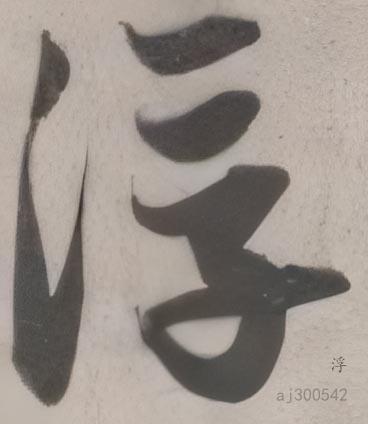 浮
浮
aj300542